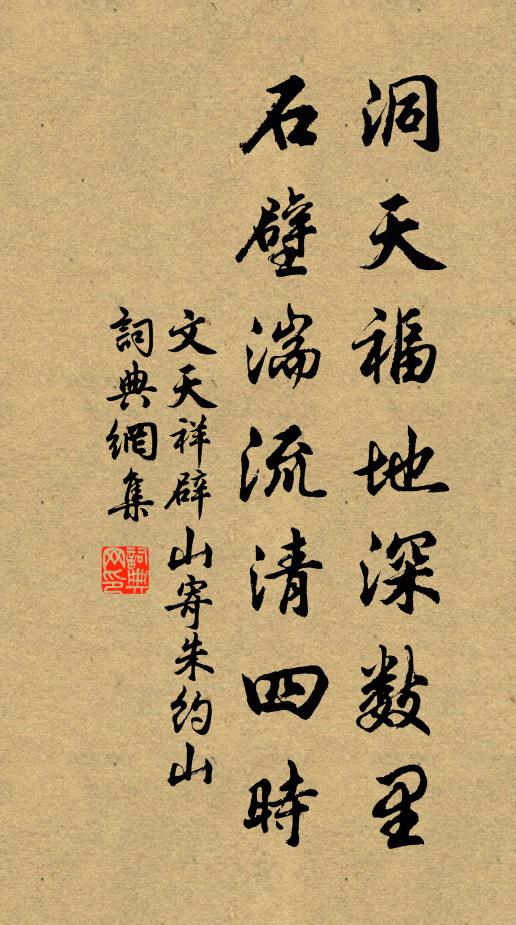 洞天福地深数里
石壁湍流清四時
文天祥辟山寄朱约山
詞典網集
詞典网印